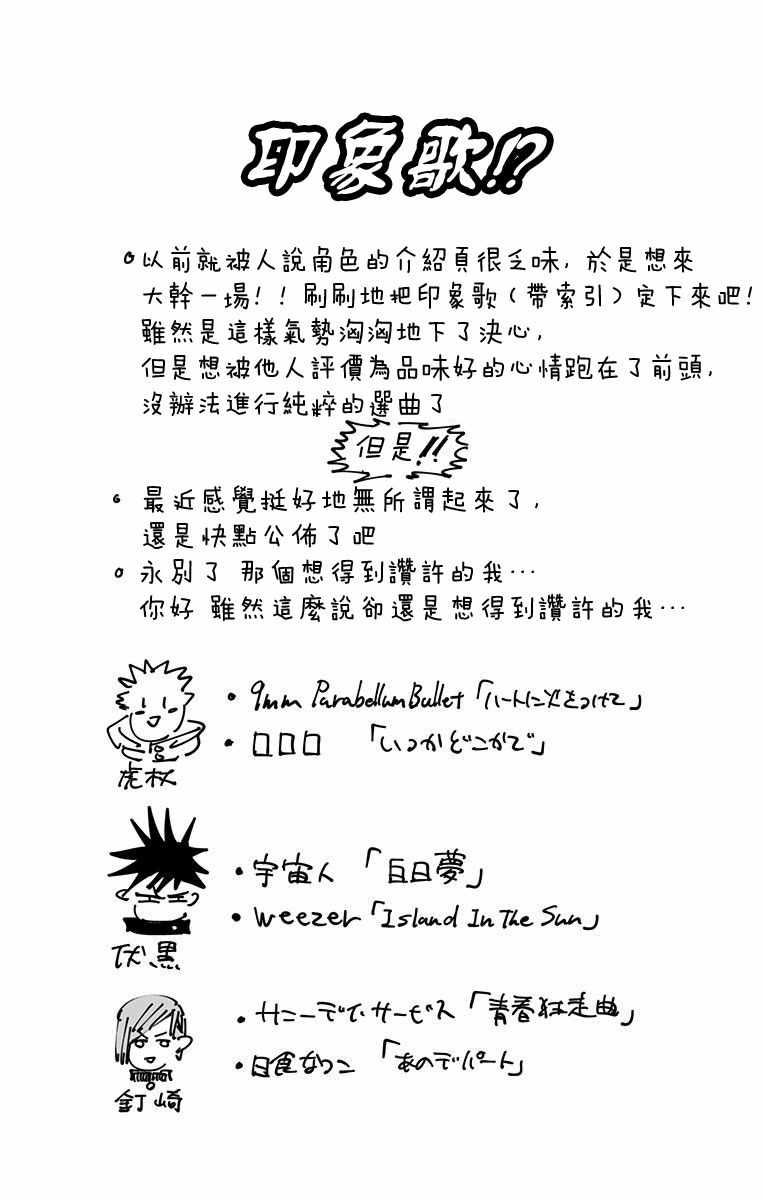 印象歌!?
以前就被人說角色的介紹頁很乏味, 於是想來
大幹一場!! 刷刷地把印象歌(帶索引)定下來吧!
雖然是這樣氣勢洶洶地下了決心,
但是想被他人評價為品味好的心情跑在了前頭,
沒辦法進行純粹的選曲了
但是!!
最近感覺挺好地無所謂起來了,
還是快點公佈了吧
永別了 那個想得到讚許的我…
你好 雖然這麼說卻還是想得到讚許的我…
・9mm Parabellum Bullet「ハートに火をつけて」
・口口口 「いつかどこかで」
虎杖
・宇宙人 「白日夢」
・weezer「Island In The Sun」
伏黒
・サニーデイ・サービス「青春狂走曲」
・日食なつこ 「あのデパート」
釘崎